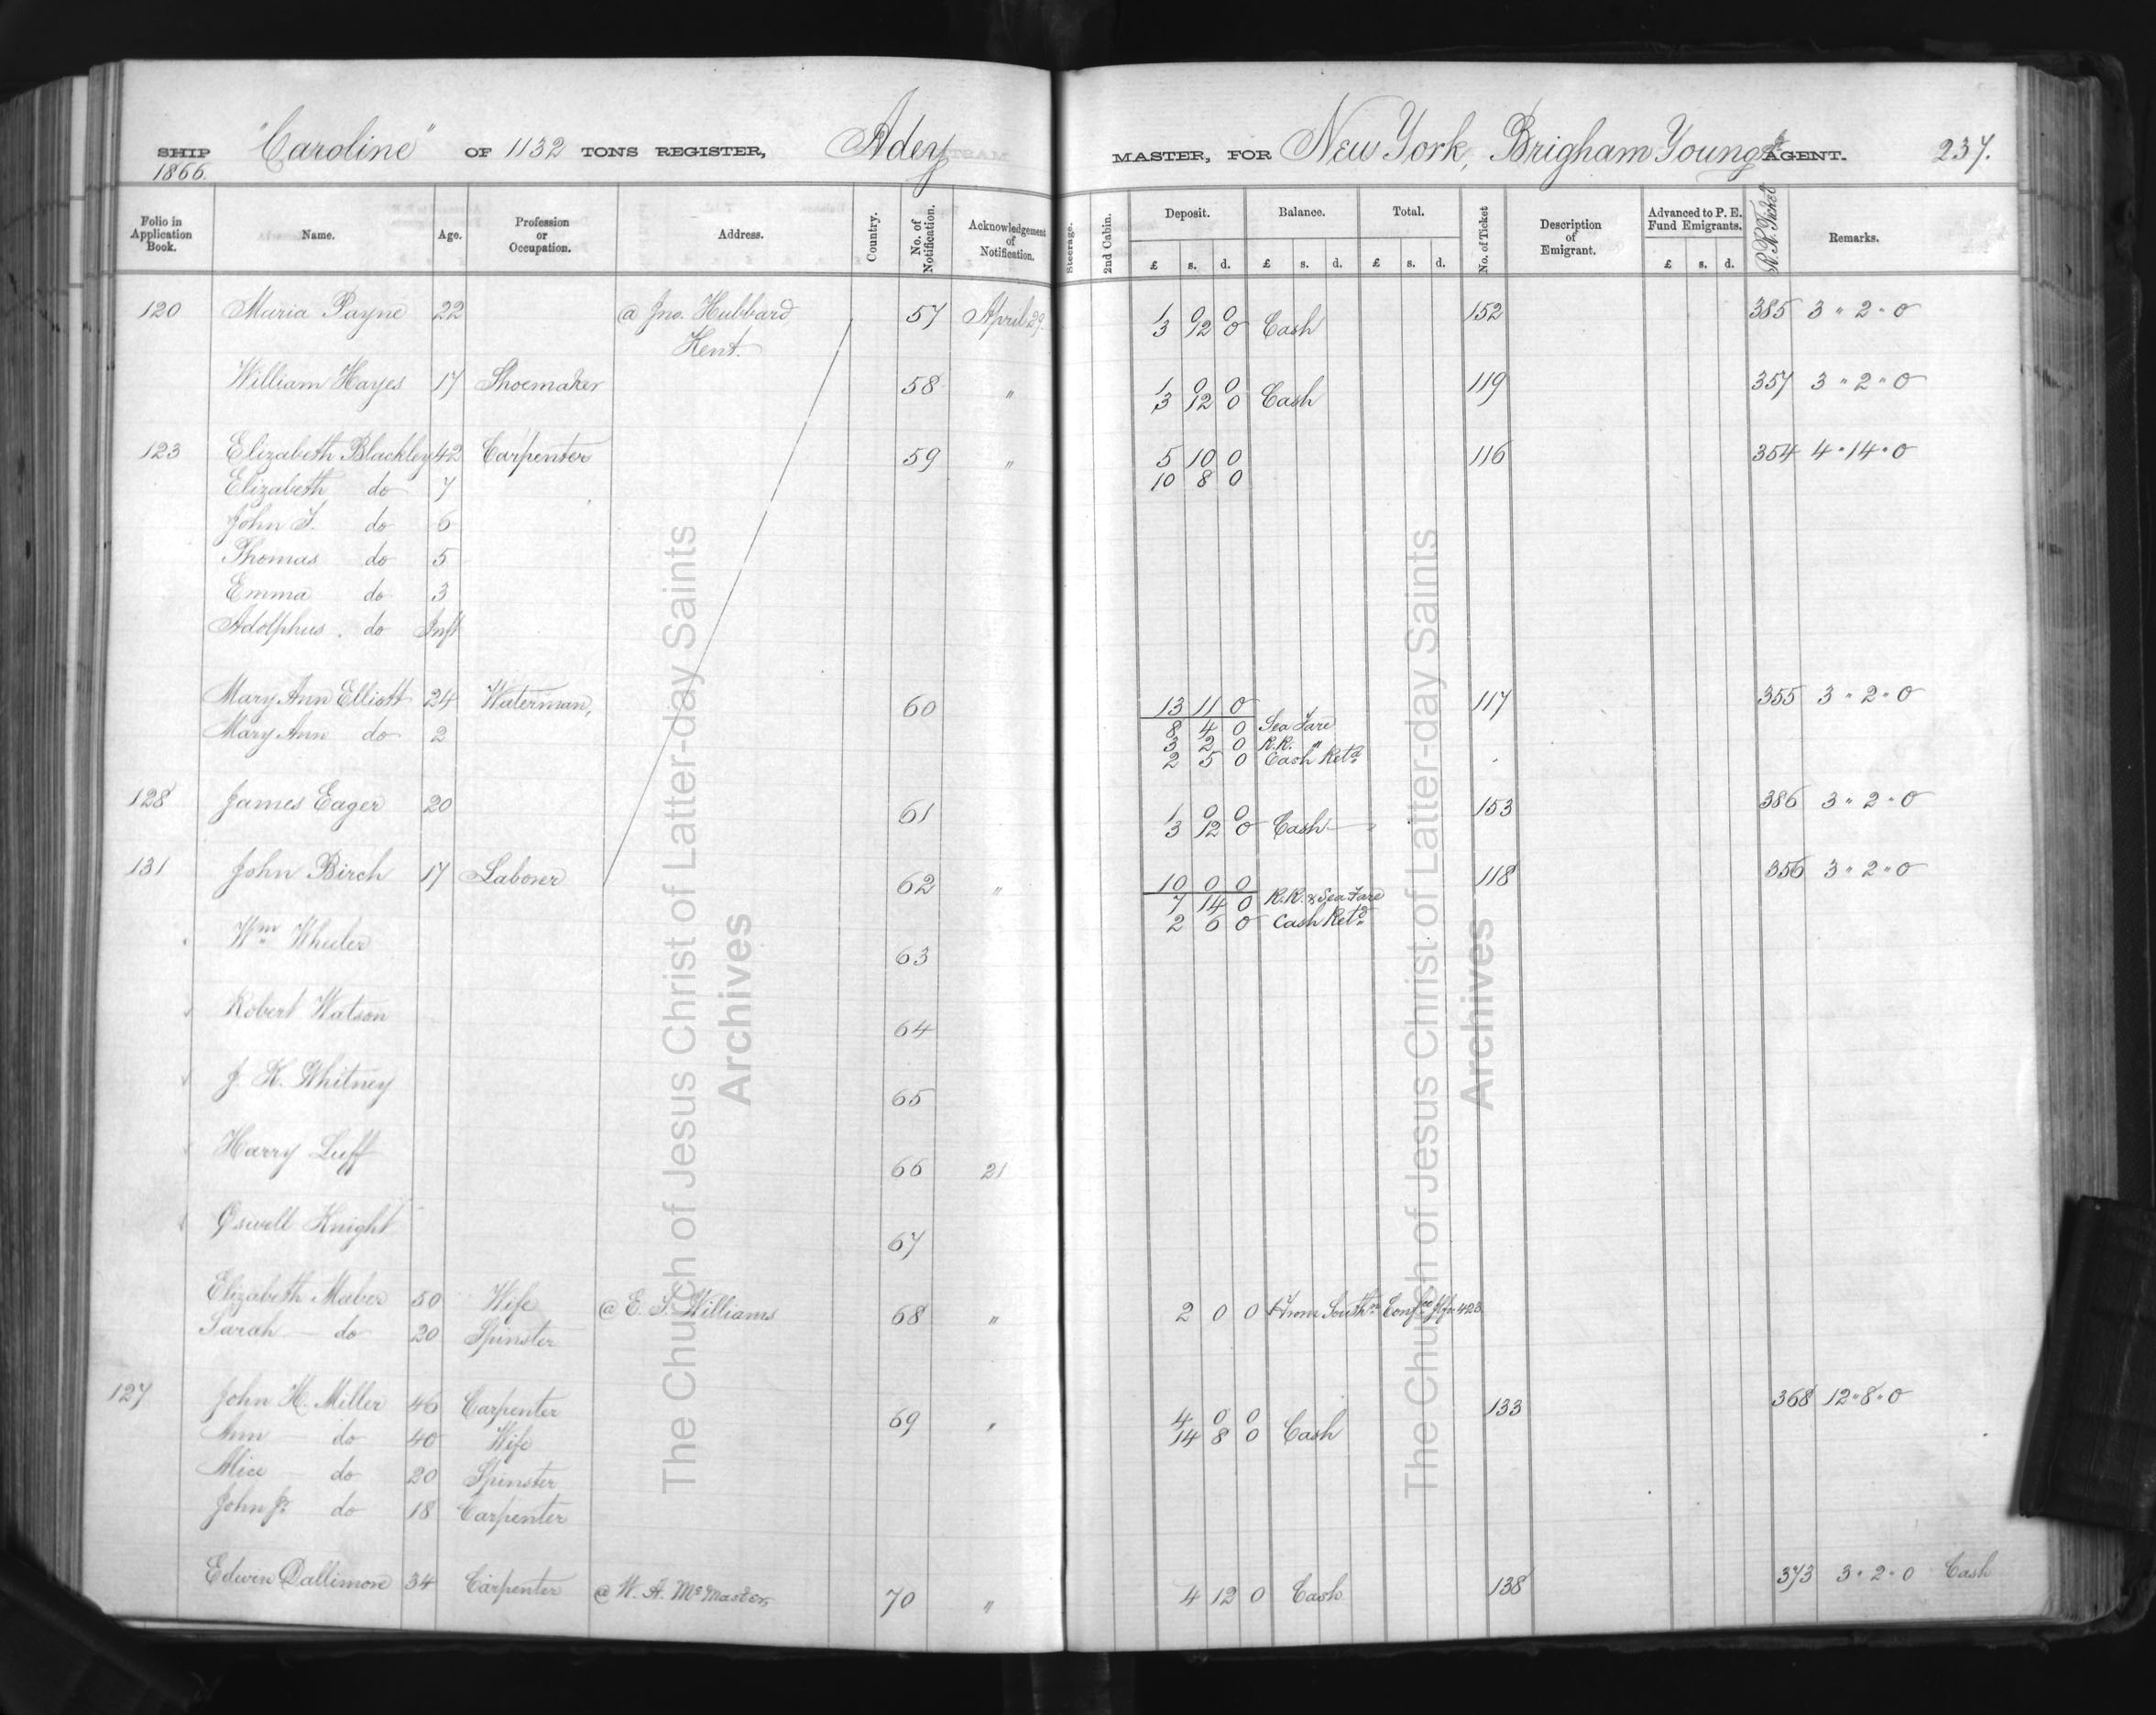 SHIP "Caroline" OF 1132 TONS REGISTER, Adey MASTER, FOR New York, Brigham Young Jr. AGENT. 237.
1866.
Folio in Application Book. Name. Age. Profession or Occupation. Address. Country. No. of Notification. Acknowledgement of Notification. Steerage. 2nd Cabin. Deposit. Balance. Total. No. of Ticket Description of Emigrant. Advanced to P. E. Fund Emigrants. R. R. Ticket Remarks.
£ s. d. £ s. d. £ s. d. £ s. d.
120 Maria Payne 22 @ Jno. Hubbard 57 April 29 1 0 0 152 385 3 " 2 " 0
Kent. 3 12 0 Cash
William Hayes 17 Shoemaker 58 " 1 0 0 119 357 3 " 2 " 0
3 12 0 Cash
123 Elizabeth Blackley 42 Carpenter 59 " 5 10 0 116 354 4 " 14 " 0
Elizabeth do 7 10 8 0
John T. do 6
Thomas do 5
Emma do 3
Adolphus do Inft
Mary Ann Elliott 24 Waterman, 60 13 11 0 117 355 3 " 2 " 0
Mary Ann do 2 8 4 0 Sea Fare
3 2 0 R.R. "
2 5 0 Cash Retd
128 James Eager 20 61 1 0 0 153 386 3 " 2 " 0
3 12 0 Cash
131 John Birch 17 Laborer 62 " 10 0 0 118 356 3 " 2 " 0
7 14 0 R.R. & Sea Fare
2 6 0 Cash Retd
Wm Wheeler 63
Robert Watson 64
J. K. Whitney 65
Harry Luff 66 21
Oswell Knight 67
Elizabeth Maber 50 Wife @ E. T. Williams 68 " 2 0 0 From Southn Confce 423
Sarah do 20 Spinster
127 John H. Miller 46 Carpenter 69 " 4 0 0 133 368 12 " 8 " 0
Ann do 40 Wife 14 8 0 Cash
Alice do 20 Spinster
John Jr do 18 Carpenter
Edwin Dallimore 34 Carpenter @ W. A. McMaster, 70 " 4 12 0 Cash 138 373 3 " 2 " 0 Cash
The Church of Jesus Christ of Latter-day Saints
Archives
The Church of Jesus Christ of Latter-day Saints
Archives